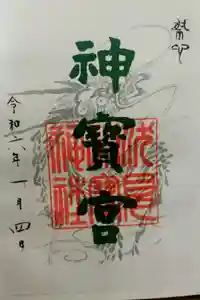 神寶宮
伏見
神寶
神社
令和六年一月四日